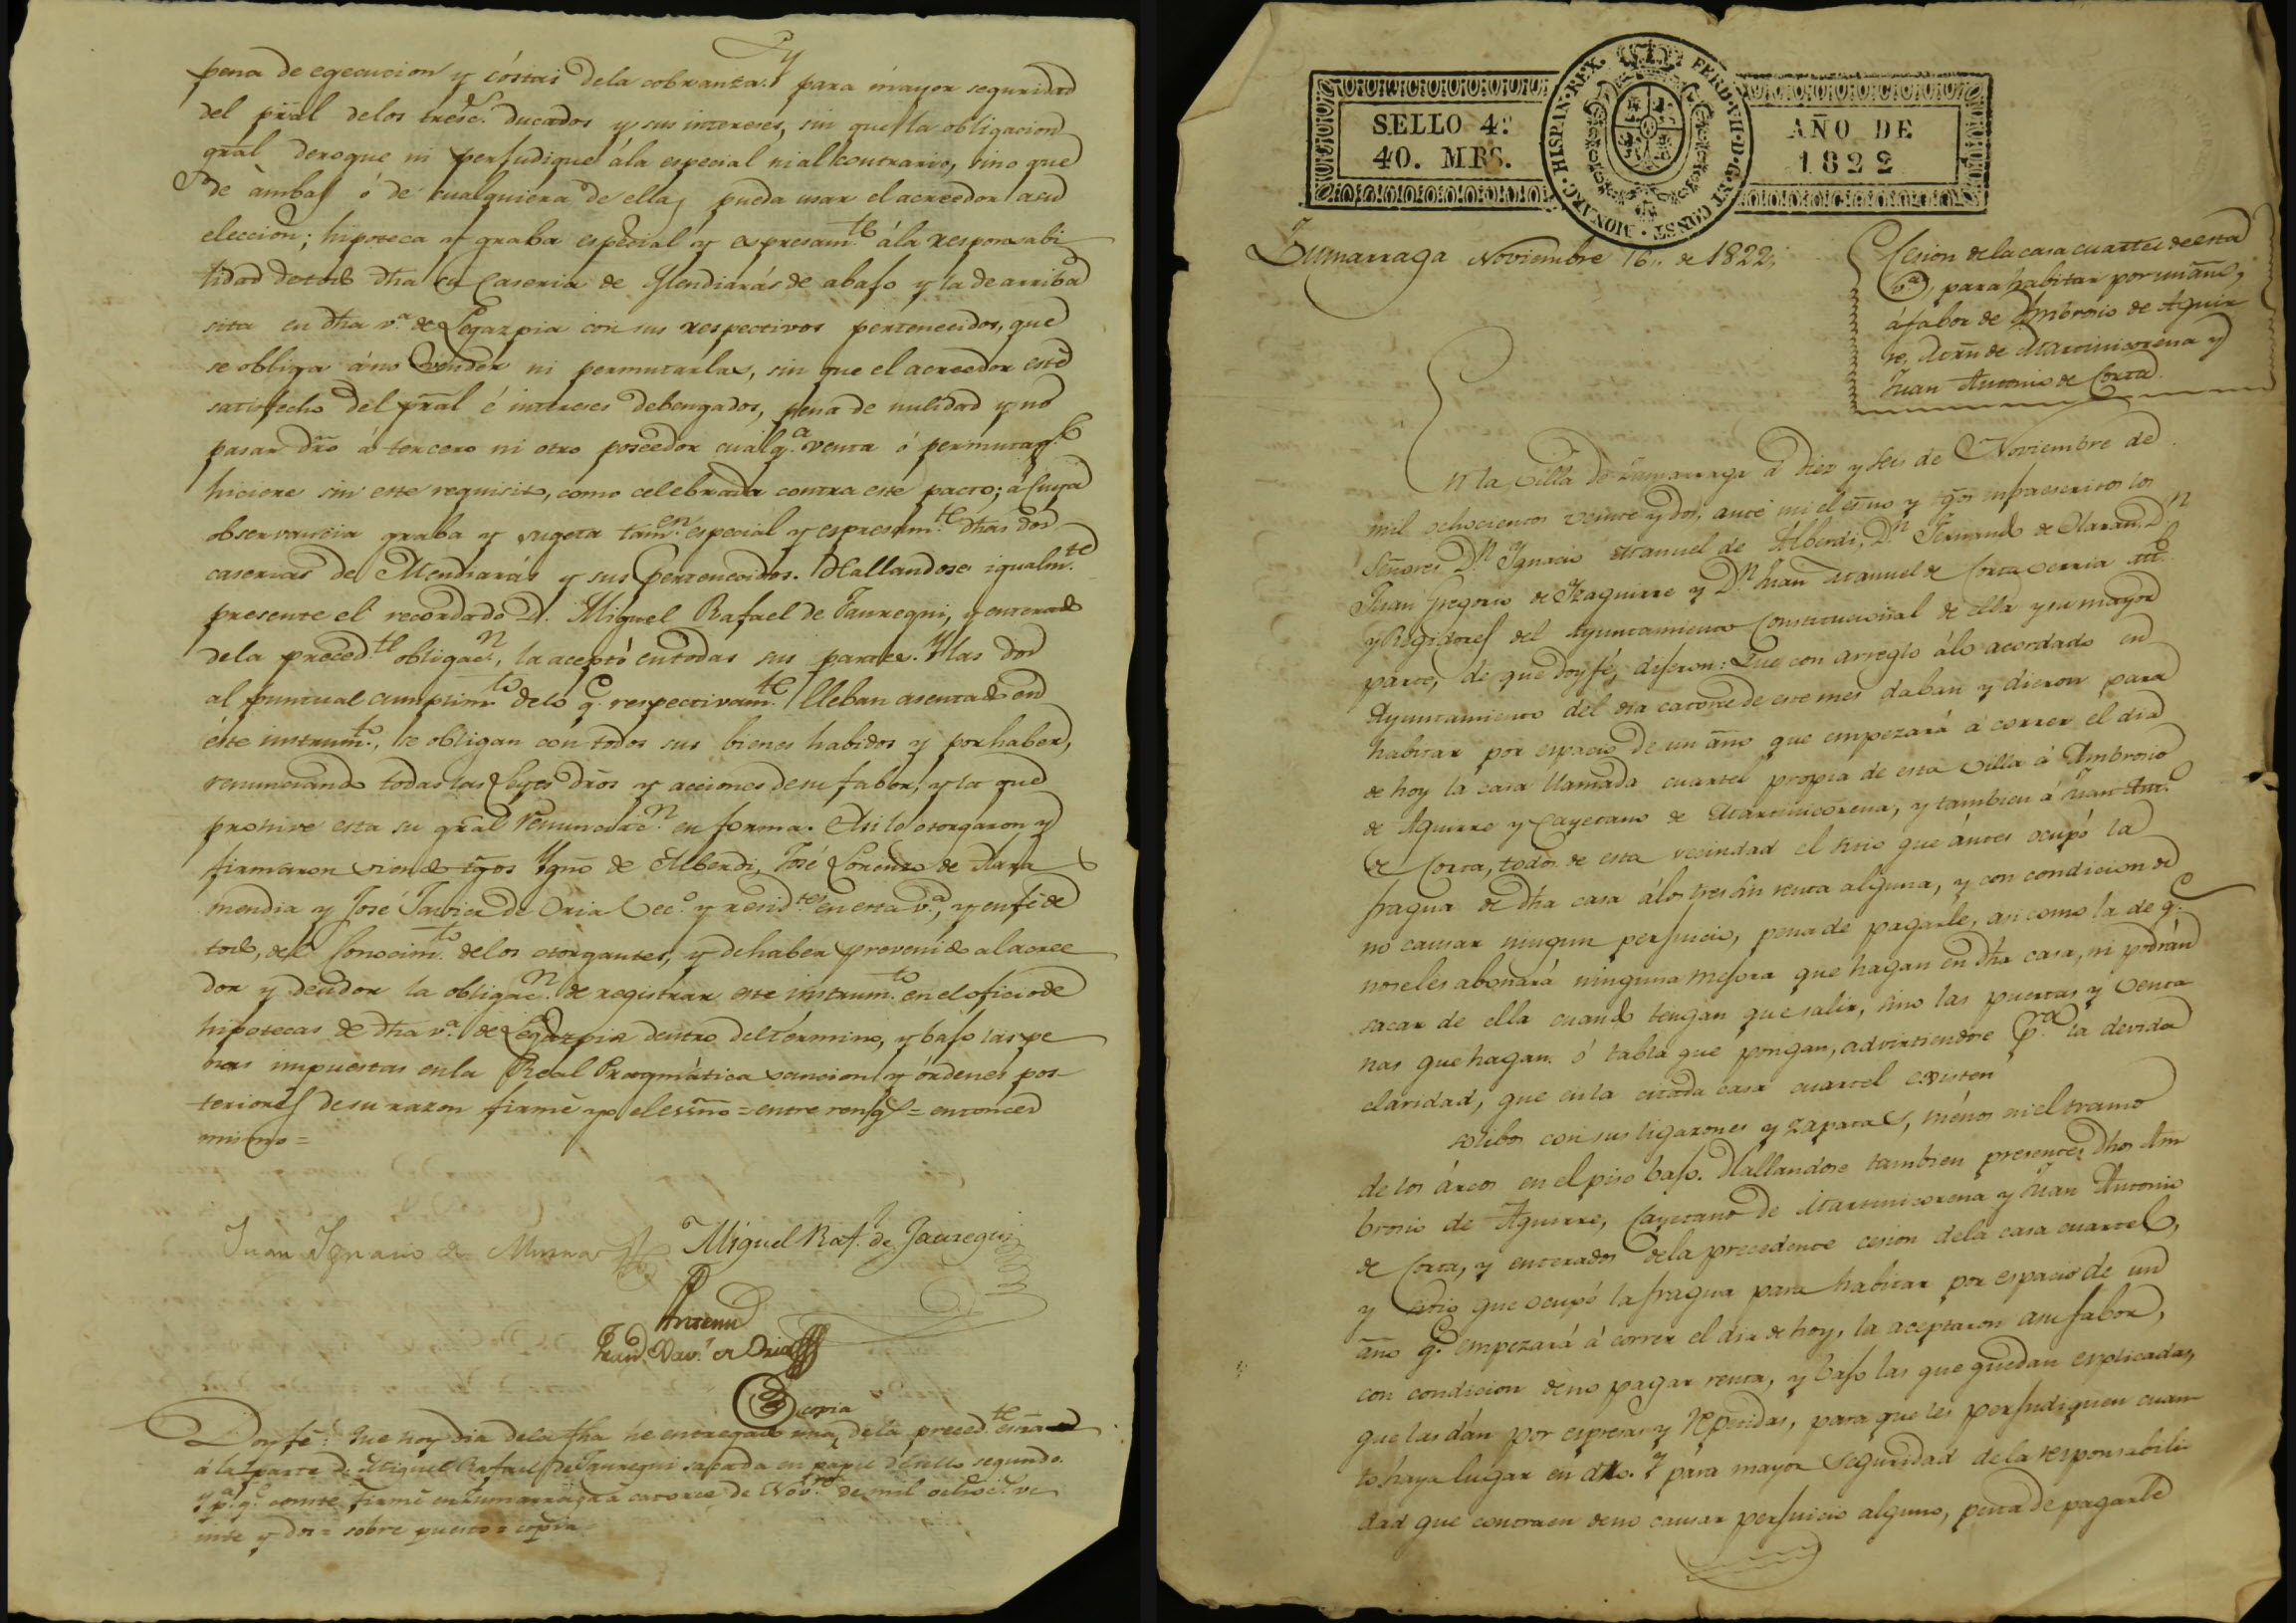 pena de egecucion y cóstas dela cobranza. Y para mayor seguridad
del prãl delos tresc.s ducados y sus intereses, sin que la obligacion
grãl derogue ni perjudique ála especial ni al contrario, sino que
de àmbas ó de cualquiera de ellas pueda usar el acreedor a su
eleccion; hipoteca y graba especial y espresam.te ála responsabi
lidad de todo dha su Caseria de Mendiarás de abajo y la de arriba
sita en dha v.a de Legazpia con sus respectivos pertenecidos, que
se obliga áno vender ni permutarlas, sin que el acreedor esté
satisfecho del prãl é intereses debengados, pena de nulidad y no
pasar dro á tercero ni otro poseedor cualq.a venta ó permuta q.e
hiciere sin este requisito, como celebrada contra este pacto; á cuya
observancia graba y sugeta tam.en especial y espresam.te dhas dos
caserias de Mendiarás y sus pertenecidos. Hallandose igualm.te
presente el recordado D. Miguel Rafael de Jauregui, y enterado
dela preced.te obligac.n, la aceptó en todas sus partes. Y las dos
al puntual cumplim.to delo q.e respectivam.te lleban asentado en
éste instrum.to, se obligan con todos sus bienes habidos y por haber,
renunciando todas las Leyes dros y acciones de su fabor, y la que
prohive esta su grãl renunciac.n en forma. Asi lo otorgaron y
firmaron siendo tgos Ygn.o de Alberdi, José Lorenzo de Ara
mendia y José Javier de Oria Vec.s y resid.tes en esta v.a, y en fé de
todo, del conocim.to delos otorgantes, y de haber prevenido al acree
dor y deudor la obligac.n de registrar este instrum.to en el oficio de
hipotecas de dha v.a de Legazpia dentro del termino, y bajo las pe
nas impuestas en la Real Pragmática sancion y órdenes pos
teriores de su razon firmé yo el essño = entre reng.s = entonces
mismo =
Juan Ignacio de Murua Miguel Raf.l de Jauregui
Antemi
Juan Xav.r de Oria
copia
Doy fé: Que hoy dia dela fha he entregado una dela preced.te esra
á la parte de Miguel Rafael de Jauregui sacada en papel del sello segundo.
Y p.a q.e conste, firmé en Zumarraga á catorce de Nov.bre de mil ochoc.s ve
inte y dos = sobre puesto = copia
SELLO 4.º
40. MRS.
HISPAN. REX. FERD. VII. D. G. ET CONST. MONARC.
AÑO DE
1822
Zumarraga Noviembre 16,, de 1822,
Cesion de la casa cuartel de esta
v.a, para habitar por un año,
á fabor de Ambrosio de Aguir
re, Cayetano de Martinicorena y
Juan Antonio de Corta.
En la Villa de Zumarraga á diez y seis de Noviembre de
mil ochocientos veinte y dos, ante mi el ssno y tgos infraescritos los
Señores D.n Ignacio Manuel de Alberdi, D.n Fernando de Olaran, D.n
Juan Gregorio de Yzaguirre y D.n Juan Manuel de Cortaverria Alc.e
y Regidores del Ayuntamiento Constitucional de ella y su mayor
parte, de que doy fé, dijeron: Que con arreglo álo acordado en
Ayuntamiento del dia catorce de este mes daban y dieron para
habitar por espacio de un año que empezará á correr el dia
de hoy la casa llamada cuartel propia de esta Villa á Ambrosio
de Aguirre y Cayetano de Martinicorena, y tambien á Juan Ant.o
de Corta, todos de esta vecindad el sitio que ántes ocupó la
fragua de dha casa álos tres sin renta alguna, y con condicion de
no causar ningun perjuicio, pena de pagarle, asi como la de q.e
noseles abonará ninguna mejora que hagan en dha casa, ni podrán
sacar de ella cuando tengan que salir, sino las puertas y venta
nas que hagan ó tabla que pongan, advirtiendose p.a la devida
claridad, que en la citada casa cuartel existen
solibos con sus ligazones y zapatas, ménos en el tramo
de los árcos en el piso bajo. Hallandose tambien presentes dhos Am
brosio de Aguirre, Cayetano de Martinicorena y Juan Antonio
de Corta, y enterados dela precedente cesion dela casa cuartel,
y sitio que ocupó la fragua para habitar por espacio de un
año q.e empezará á correr el dia de hoy, la aceptaron a su fabor,
con condicion de no pagar renta, y bajo las que quedan esplicadas,
que las dán por espresas y repetidas, para que les perjudiquen cuan
to haya lugar en dro. Y para mayor seguridad de la responsabili
dad que contraen de no causar perjuicio alguno, pena de pagarle